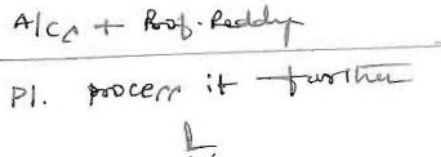 A/Cs + Prof. Reddy
Pl. process it further